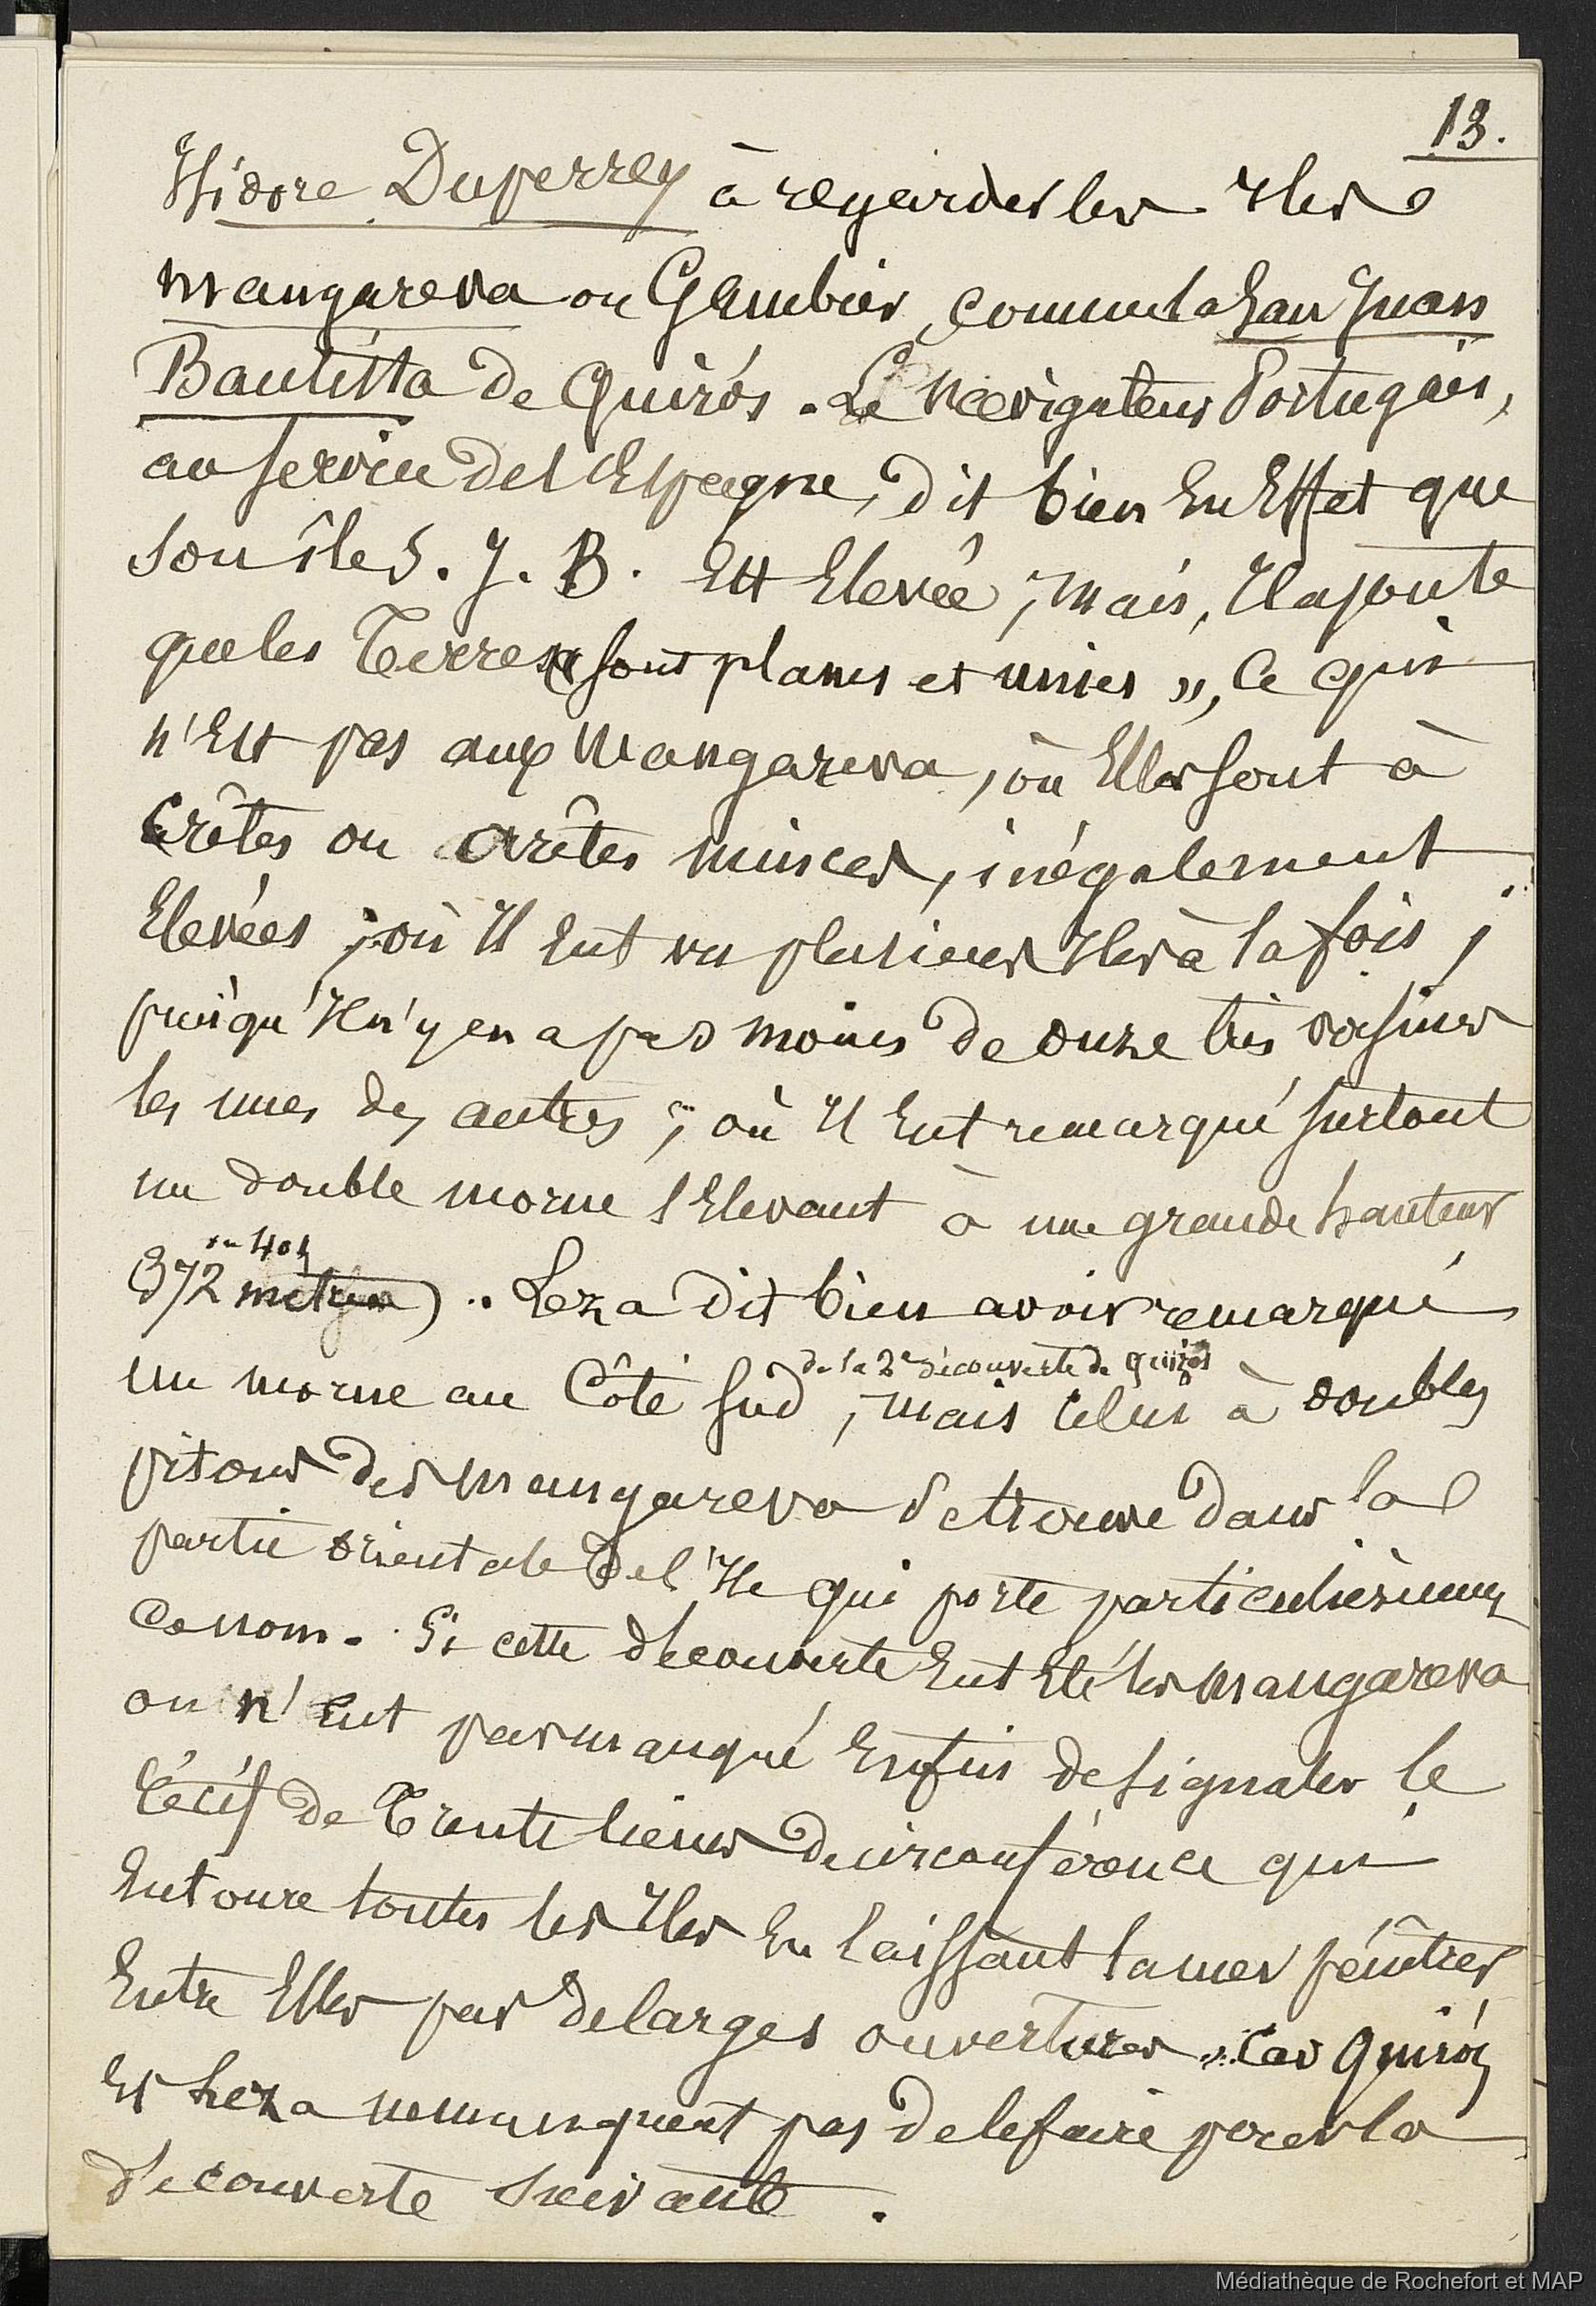 13.
Isidore Duperrey à regarder les Iles
Mangareva ou Gambier, comme la San Juan
Bautista de Quirós. Le Navigateur Portugais,
au service de l'Espagne, dit bien En Effet que
son île S. J. B. Est Elevée ; mais, Il ajoute
que les Terres « sont planes et unies », ce qui
n'Est pas aux Mangareva, où Elles sont à
crêtes ou arêtes minces, inégalement
Elevées ; où Il Eut vu plusieurs Iles à la fois ;
puisqu'Il n'y en a pas moins de onze très voisines
les unes des autres ; où Il Eut remarqué surtout
un double morne s'Elevant à une grande hauteur
ou 401
(372 mètres). Leza dit bien avoir remarqué
de la 2e découverte de Quirós
un morne au Côté Sud, mais celui à doubles
pitons des Mangareva se trouve dans la
partie orientale de l'Ile qui porte particulièrement
ce nom. Si cette découverte Eut Eté les Mangareva
on n'Eut pas manqué Enfin de signaler le
récif de Trente lieues de circonférence qui
Entoure toutes les Iles En laissant la mer pénétrer
Entre Elles par de larges ouvertures » car Quirós
Et Leza ne manquent pas de le faire pour la
découverte suivante.
Médiathèque de Rochefort et MAP